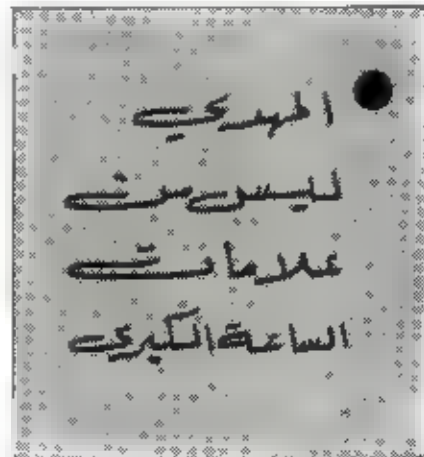 المهدي
ليس من
علامات
الساعة الكبرى